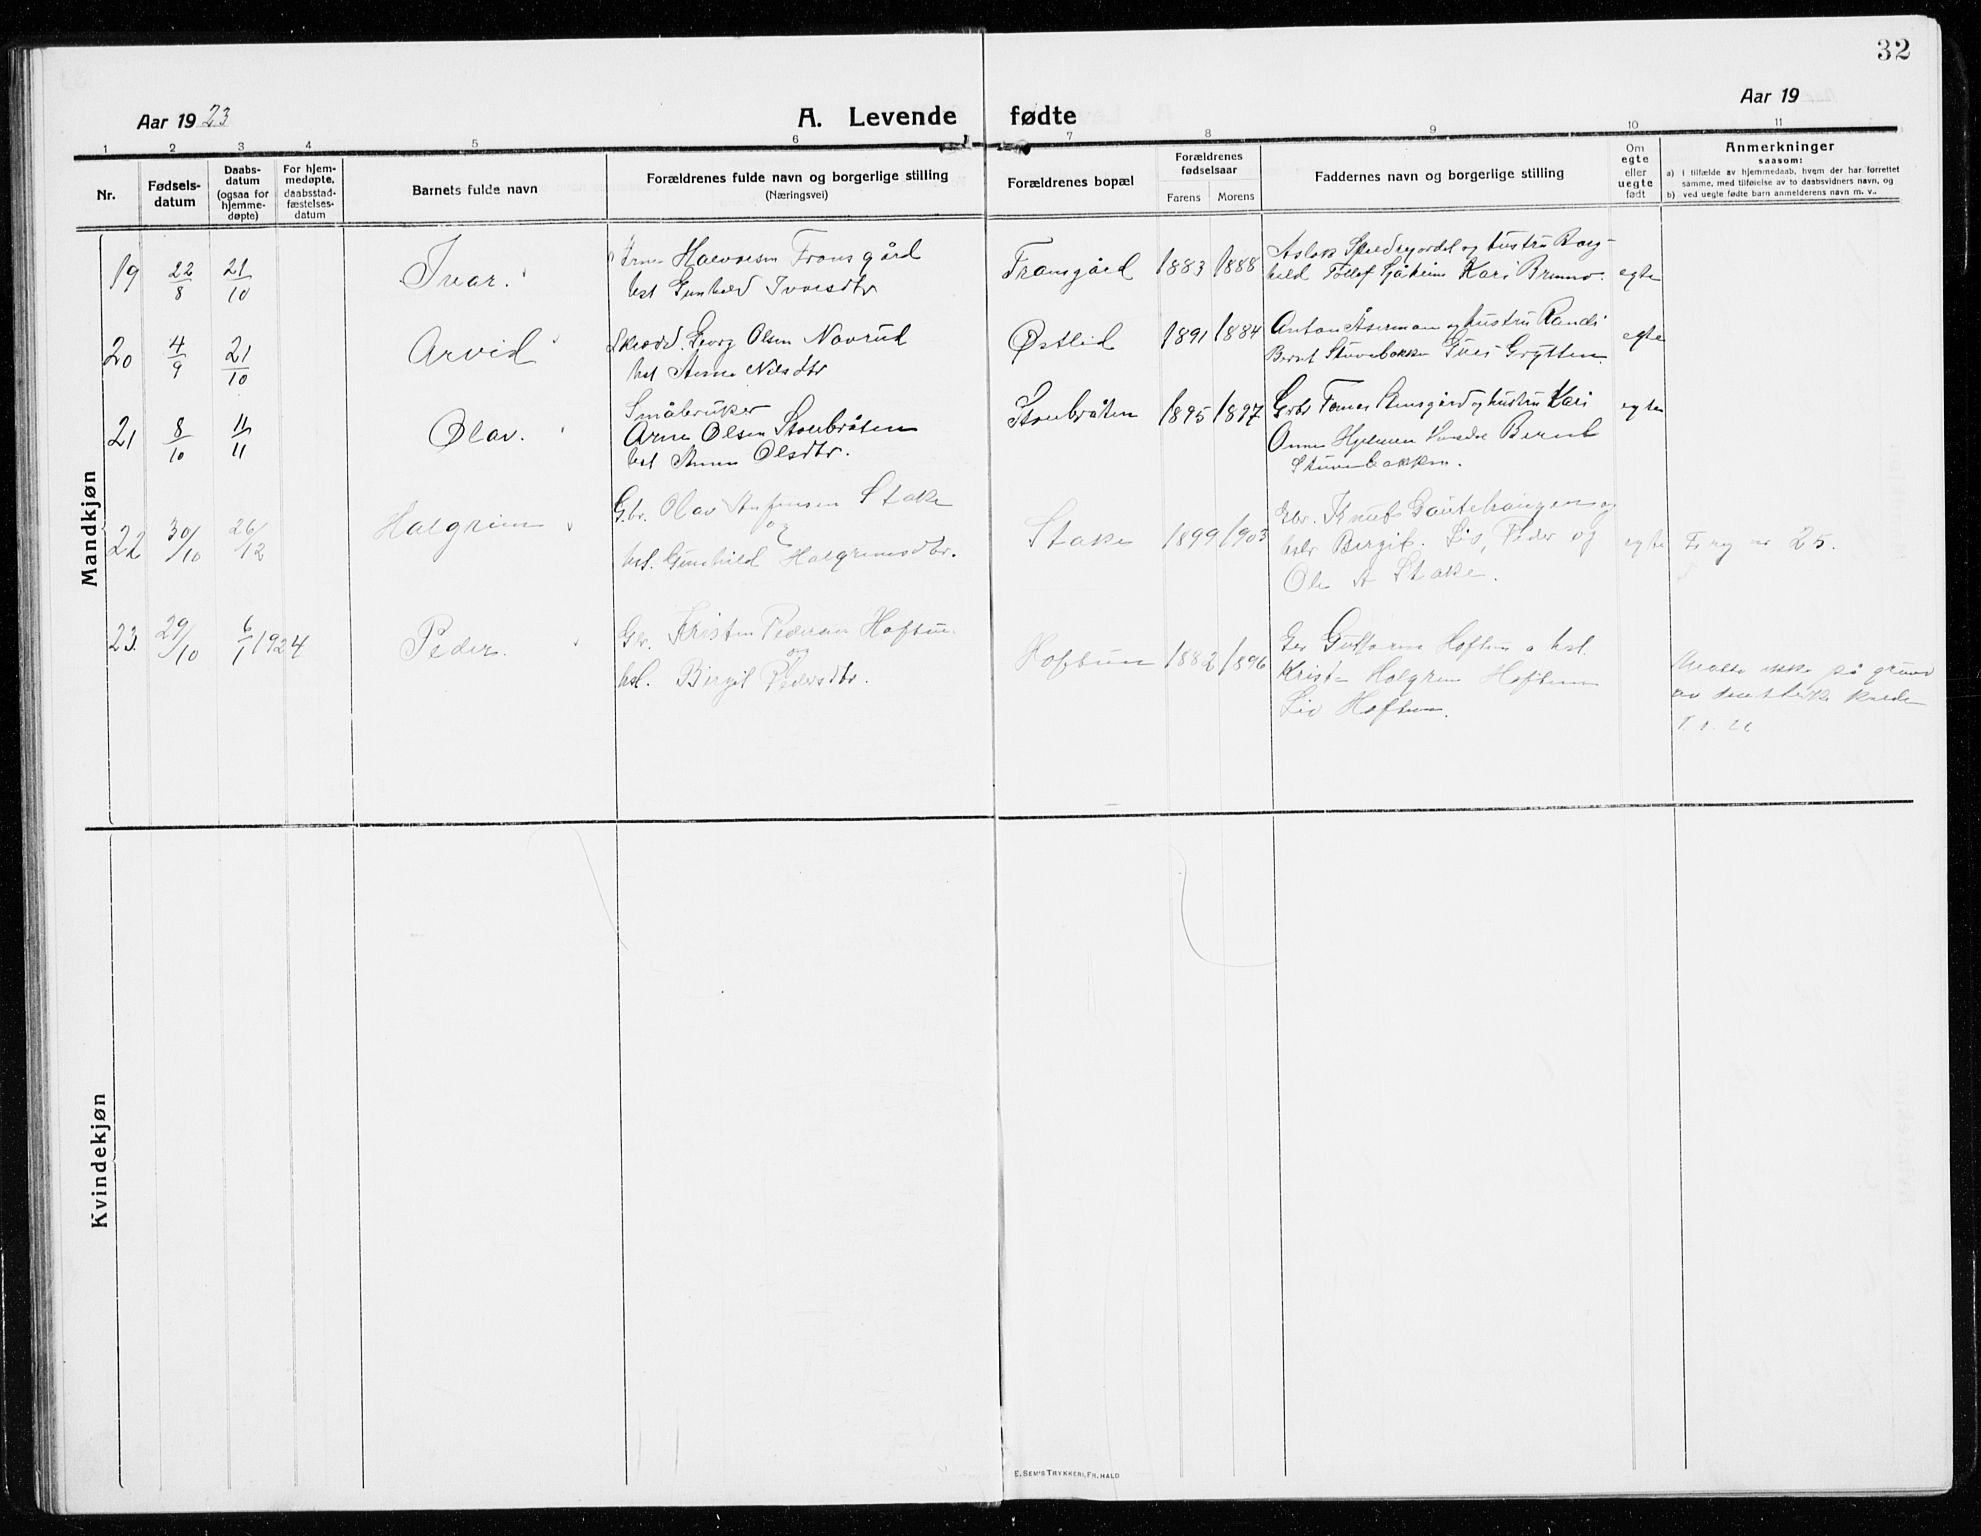 32
Aar 1923
A. Levende fødte
Aar 19
1 2 3 4 5 6 7 8 9 10 11
Nr.
Fødsels-
datum
Daabs-
datum
(ogsaa for
hjemme-
døpte)
For hjem-
medøpte,
daabsstad-
fæstelses-
datum
Barnets fulde navn
Forældrenes fulde navn og borgerlige stilling
(Næringsvei)
Forældrenes bopæl
Forældrenes
fødselsaar
Farens Morens
Faddernes navn og borgerlige stilling
Om
egte
eller
uegte
født
Anmerkninger
saasom:
a) i tilfælde av hjemmedaab, hvem der har forrettet
samme, med tilføielse av to daabsvidners navn, og
b) ved uegte fødte barn anmelderens navn m. v..
Mandkjøn
19 22/8 21/10 Ivar.
Arne Halvorsen Fransgård
hst Gunhild Ivarsdtr
Fransgård 1883 1888
Aslak og hustru Borg-
hild Tollef Kari
egte
20 4/9 21/10 Arvid
Skredd. Georg Olsen Navrud
hst Anne Nilsdtr
Østlid 1891 1884
Anton og hustru Randi
Bernt Stuvebakke Grytten.
egte
21 8/10 11/11 Olav.
Småbruker
Arne Olsen Stenbråten
hst Anne Olsdtr.
Stenbråten 1895 1897
Gbr og hustru Kari
Bernt
Stuvebakken.
egte
22 30/10 26/12 Halgrim
Gbr. Olav Stake
og
hst. Gunhild Halgrimsdtr.
Stake 1899 1903
Gbr. Knut og
Birgit. Liv, Peder og
Ole A Stake.
egte
nr 25.
23. 29/10 6/1 1924 Peder.
Gbr. Kristen Pedersen Hoftun
og
hst. Birgit Pedersdtr.
Hoftun 1882 1896
Guttorm Hoftun o hst.
Kristi Halgrim Hoftun
Liv Hoftun.
ikke på grund
av
Kvindekjøn
E. SEM'S TRYKKERI, FR.HALD